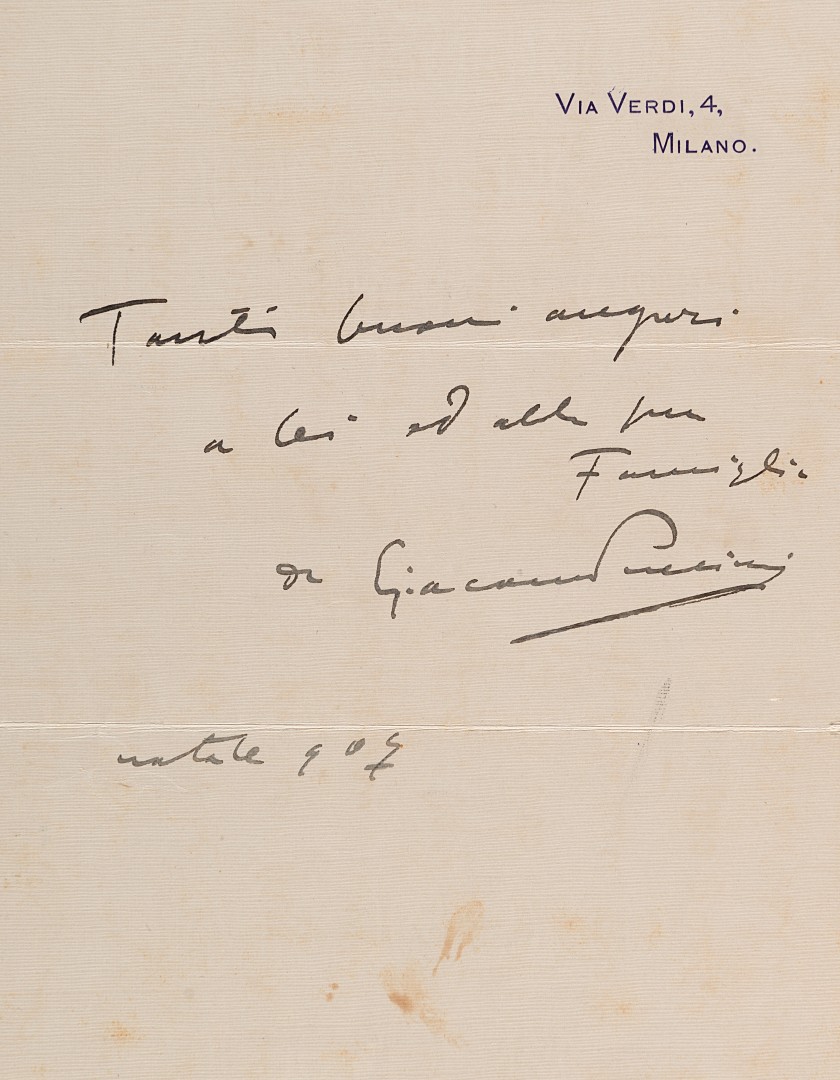 VIA VERDI, 4,
MILANO.
Tanti buoni auguri
a lei ed alla sua
Famiglia
da Giacomo Puccini
natale 907